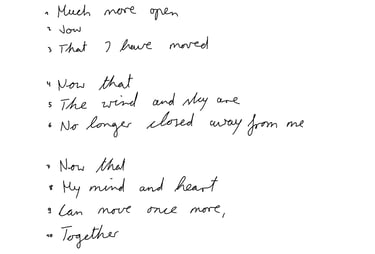 1 Much more open
2 Now
3 That I have moved
4 Now that
5 The wind and sky are
6 No longer closed away from me
7 Now that
8 My mind and heart
9 Can move once more,
10 Together